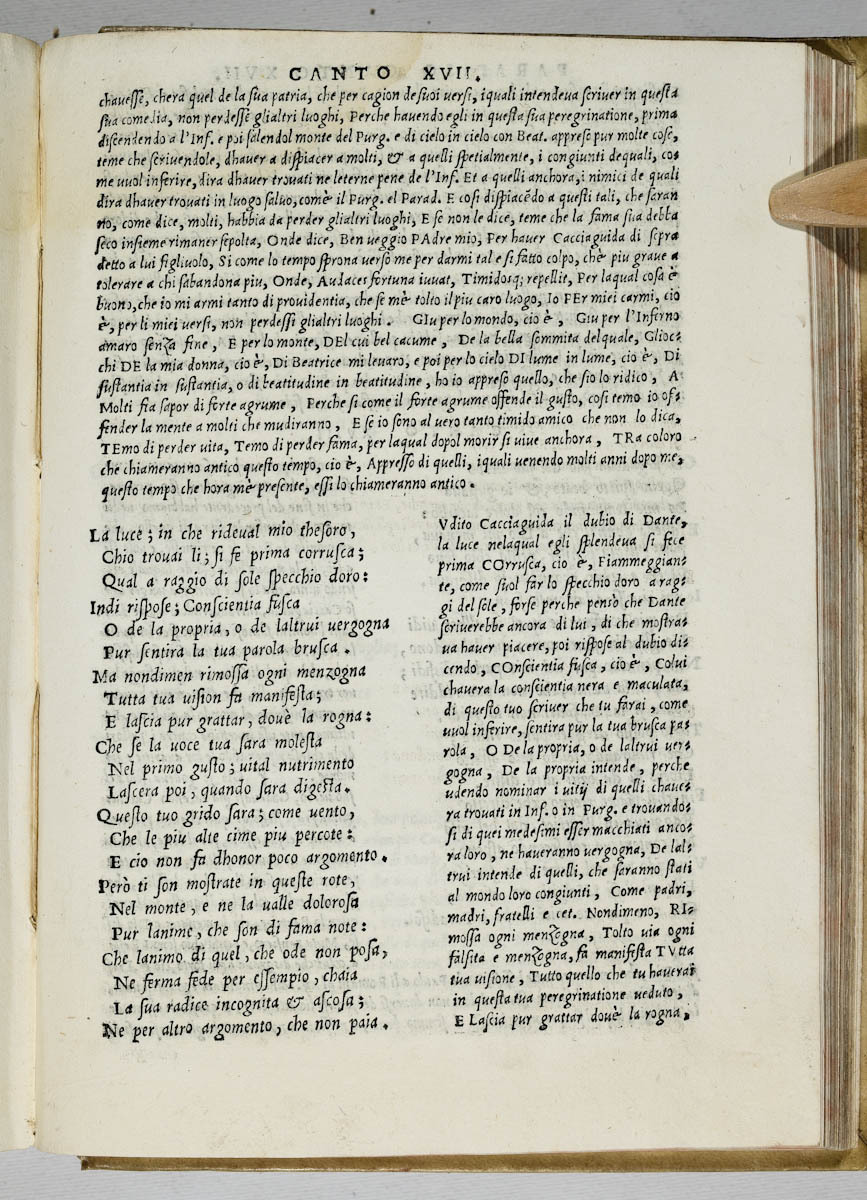 CANTO XVII.
chavesse, chera quel de la sua patria, che per cagion de suoi versi, iquali intendeva scriver in questa
sua comedia, non perdesse glialtri luoghi, Perche havendo egli in questa sua peregrinatione, prima
discendendo a l'Inf. e poi salendol monte del Purg. e di cielo in cielo con Beat. apprese pur molte cose,
teme che scrivendole, dhauer a dispiacer a molti, & a quelli spetialmente, i congiunti dequali, co⸗
me vuol inferire, dira dhauer trovati ne leterne pene de l'Inf. Et a quelli anchora, i nimici de quali
dira dhauer trovati in luogo saluo, comè il Purg. el Parad. E cosi dispiacēdo a questi tali, che saran
no, come dice, molti, habbia da perder glialtri luoghi, E se non le dice, teme che la fama sua debba
seco insieme rimaner sepolta, Onde dice, Ben veggio PAdre mio, Per hauer Cacciaguida di sopra
detto a lui figliuolo, Si come lo tempo sprona verso me per darmi tal e si fatto colpo, chè piu graue a
tolerare a chi sabandona piu, Onde, Audaces fortuna iuuat, Timidosq; repellit, Per laqual cosa è
buono, che io mi armi tanto di prouidentia, che se mè tolto il piu caro luogo, Io PEr miei carmi, cio
è, per li miei versi, non perdessi glialtri luoghi. GIu per lo mondo, cio è, Giu per l'Inferno
amaro senza fine, E per lo monte, DEl cui bel cacume, De la bella sommita delquale, Glioc⸗
chi DE la mia donna, cio è, Di Beatrice mi leuaro, e poi per lo cielo DI lume in lume, cio è, Di
sustantia in sustantia, o di beatitudine in beatitudine, ho io appreso quello, che sio lo ridico, A
Molti fia sapor di forte agrume, Perche si come il forte agrume offende il gusto, cosi temo io of⸗
fender la mente a molti che mudiranno, E se io sono al uero tanto timido amico che non lo dica,
TEmo di perder vita, Temo di perder fama, per laqual dopol morir si viue anchora, TRa coloro
che chiameranno antico questo tempo, cio è, Appresso di quelli, iquali uenendo molti anni dopo me,
questo tempo che hora mè presente, essi lo chiameranno antico.
La luce; in che rideual mio thesoro,
Chio trouai li; si fe prima corrusca;
Qual a raggio di sole specchio doro:
Indi rispose; Conscientia fusca
O de la propria, o de laltrui uergogna
Pur sentira la tua parola brusca.
Ma nondimen rimossa ogni menzogna
Tutta tua uision fa manifesta;
E lascia pur grattar, douè la rogna:
Che se la uoce tua sara molesta
Nel primo gusto; uital nutrimento
Lascera poi, quando sara digesta.
Questo tuo grido sara; come uento,
Che le piu alte cime piu percote:
E cio non fa dhonor poco argomento.
Però ti son mostrate in queste rote,
Nel monte, e ne la ualle dolorosa
Pur lanime, che son di fama note:
Che lanimo di quel, che ode non posa,
Ne ferma fede per essempio, chaia
La sua radice incognita & ascosa;
Ne per altro argomento, che non paia.
Vdito Cacciaguida il dubio di Dante,
la luce nelaqual egli splendeua si fece
prima COrrusca, cio è, Fiammeggian⸗
te, come suol far lo specchio doro a rag⸗
gi del sole, forse perche pensò che Dante
scriuerebbe ancora di lui, di che mostra⸗
ua hauer piacere, poi rispose al dubio di⸗
cendo, COnscientia fusca, cio è, Colui
chauera la conscientia nera e maculata,
di questo tuo scriuer che tu farai, come
uuol inferire, sentira pur la tua brusca pa⸗
rola, O De la propria, o de laltrui uer⸗
gogna, De la propria intende, perche
udendo nominar i uitij di quelli chaue⸗
ra trouati in Inf. o in Purg. e trouando⸗
si di quei medesimi esser macchiati anco⸗
ra loro, ne haueranno uergogna, De lal⸗
trui intende di quelli, che saranno stati
al mondo loro congiunti, Come padri,
madri, fratelli e cet. Nondimeno, RI⸗
mossa ogni menzogna, Tolto uia ogni
falsita e menzogna, fa manifesta TVtta
tua uisione, Tutto quello che tu hauerai
in questa tua peregrinatione ueduto,
E Lascia pur grattar douè la rogna,